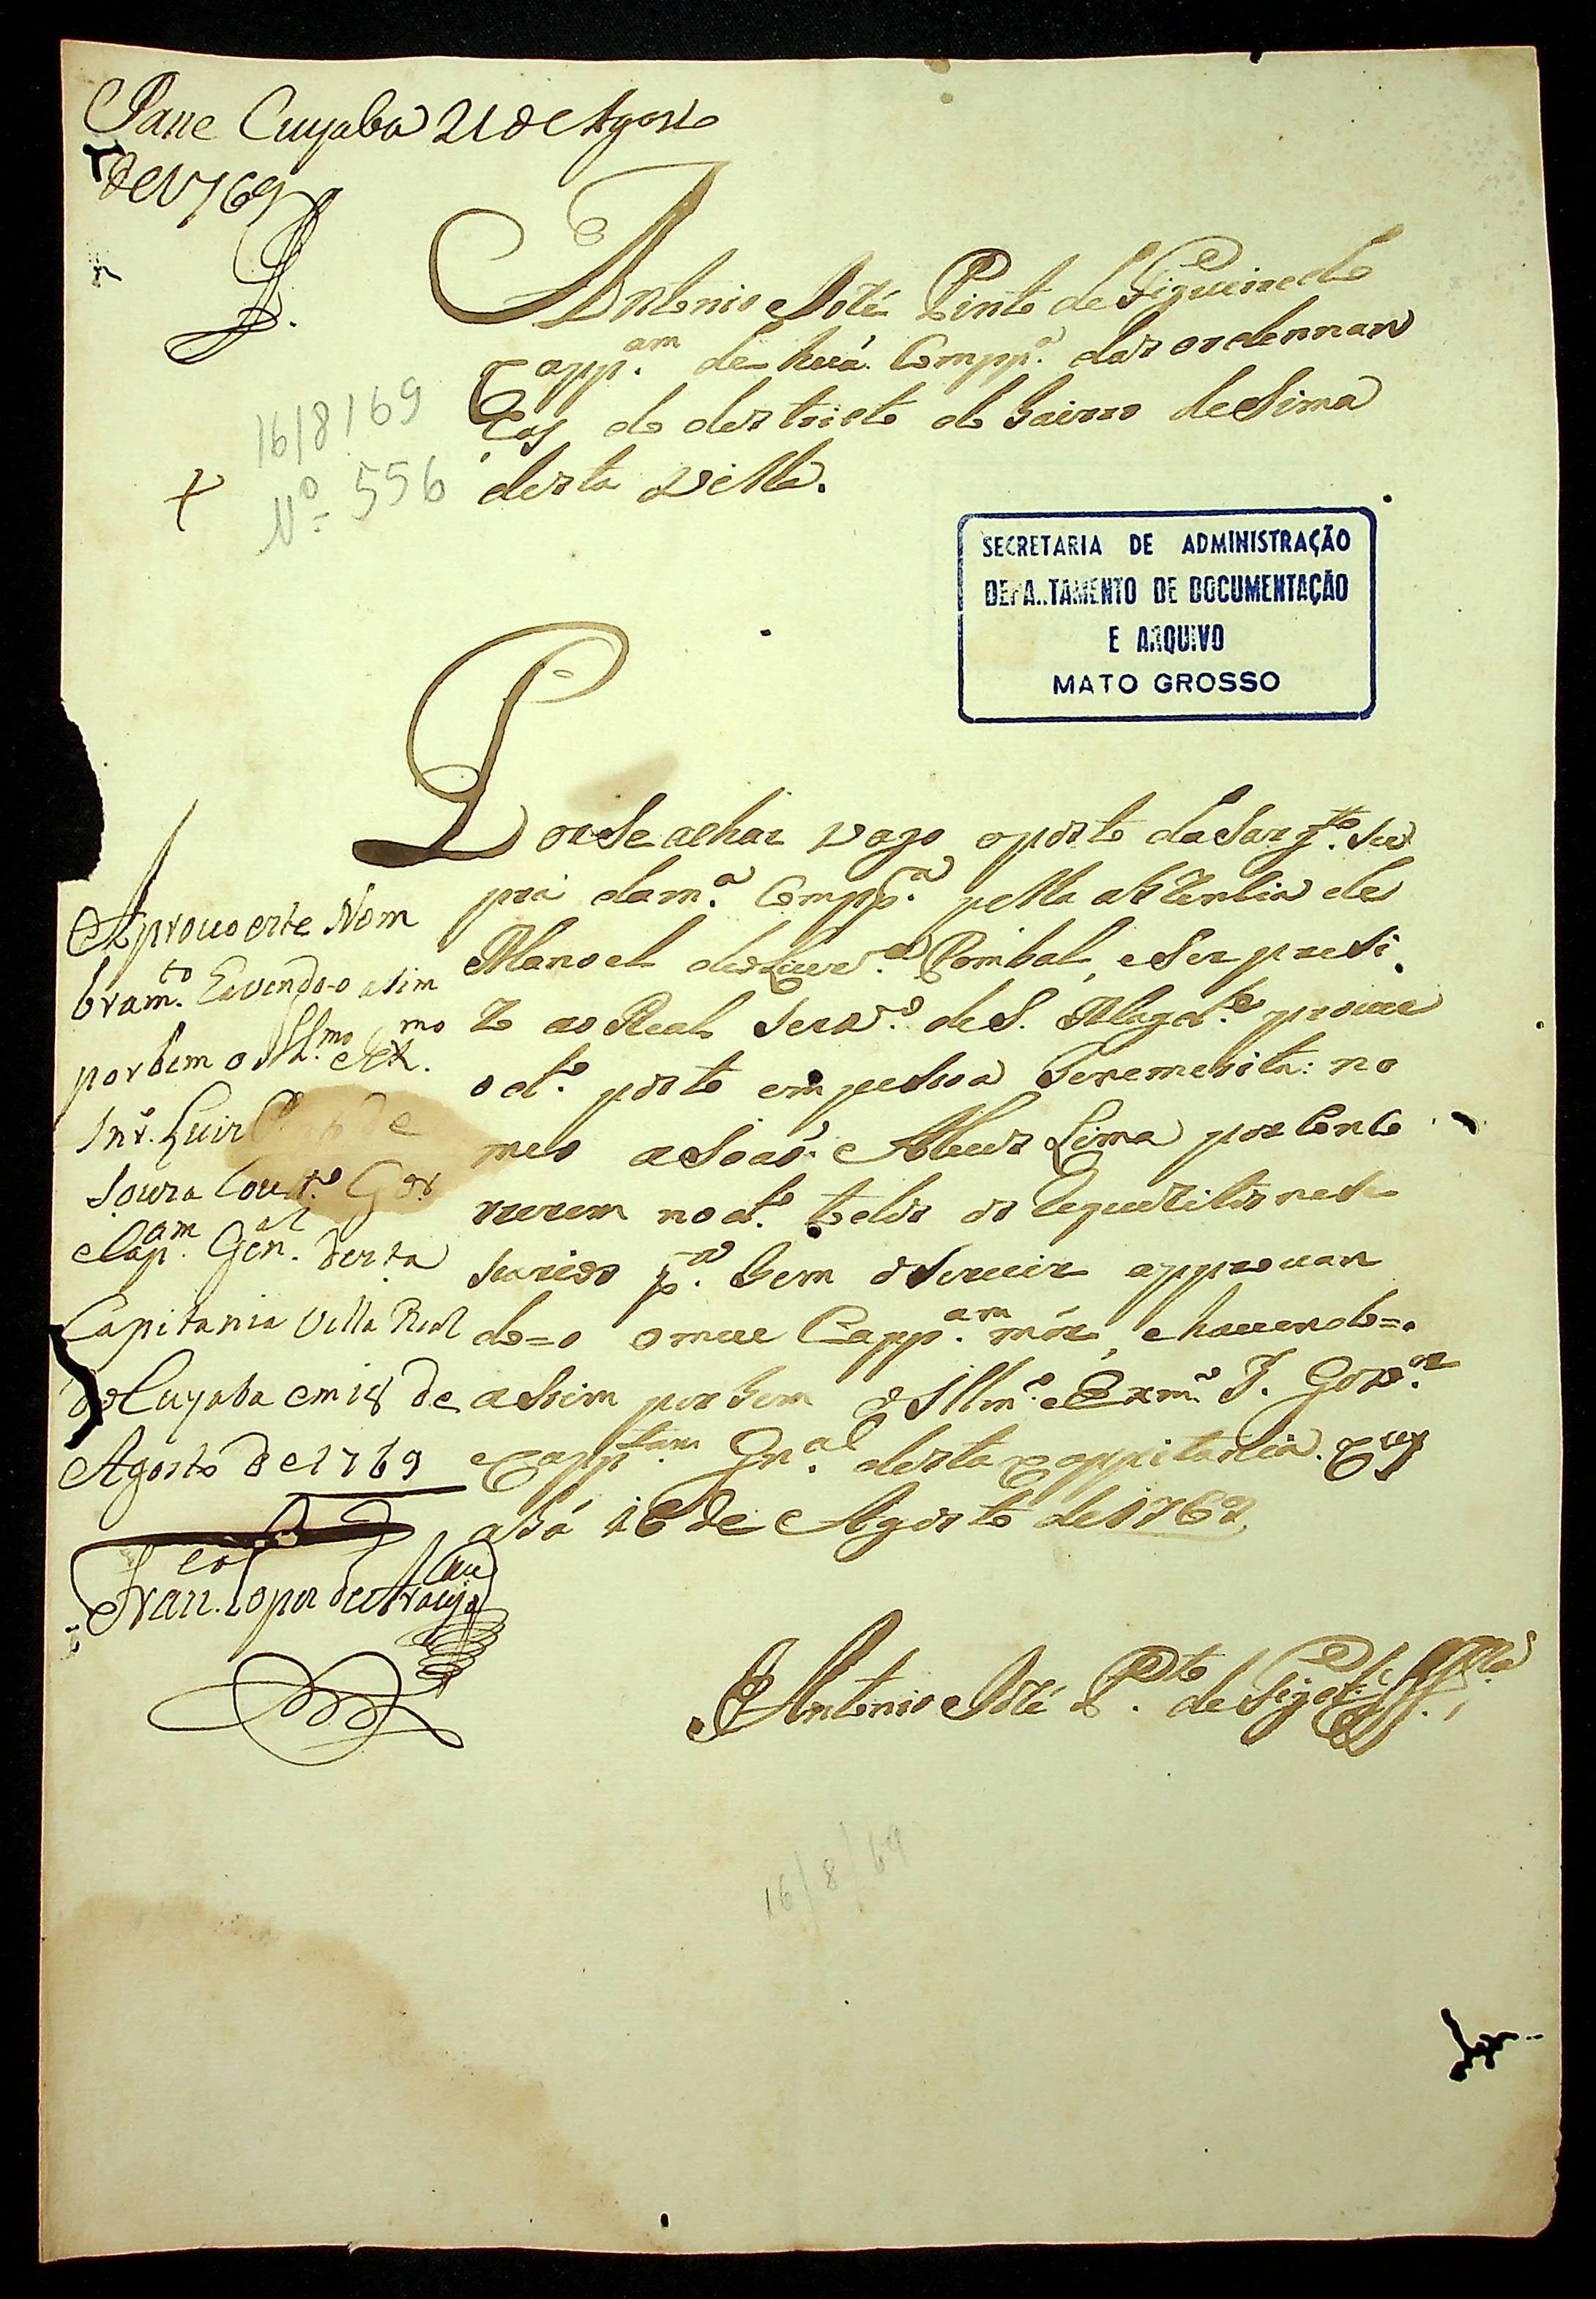 Passe Cuyaba 21 de Agosto
de 1769
Antonio Jozé Pinto de Figueiredo
Capp.am de huã Compp.a das ordennan
ças do destricto do bairro de Sima
desta Villa.
16/8/69
Nº 556
SECRETARIA DE ADMINISTRAÇÃO
DEPARTAMENTO DE DOCUMENTAÇÃO
E ARQUIVO
MATO GROSSO
Por se achar vago o posto da Sarg.to su
pra da m.a Compp.a pella abzencia de
Manoel de Pombal, e ser presi
zo ao Real Serv.o de S. Mag.de prouer
o d.o posto em pessoa benemerita: no
meo a Joaõ Alues Lima por conco
rrerem no d.o todos os requezitos nese
sarios p.a bem o seruir approuan
do=o o meu Capp.am mór, e hauendo=o
assim por bem o Illm.o e Exm.o S. Gov.or
e Capp.tam Gn.al desta Cappitania. Cuy
abá 16 de Agosto de 1769
Antonio Jozé P.to de Figd.o
Aprouo este Nom
bram.to Eavendo-o asim
por bem o Ill.mo e Ex.mo
Snr. Luis Pinto de
Souza Cout.o Gov.or
e Cap.am Gen.al desta
Capitania Villa Real
do Cuyaba em 18 de
Agosto de 1769
Fran.co Lopes de Araujo
16/8/69